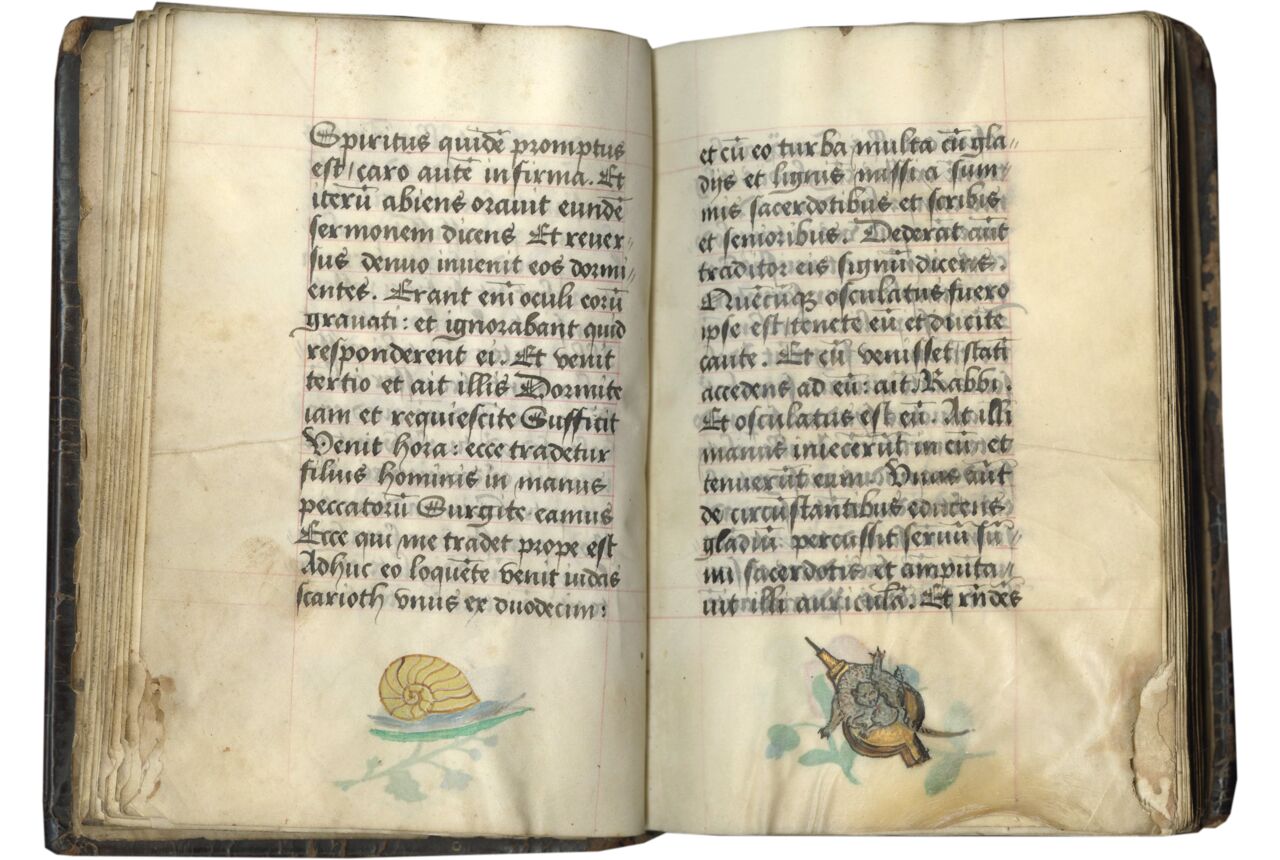 Spiritus quidē promptus
est / caro autē infirma. Et
iterū abiens orauit eundē
sermonem dicens Et reuer//
sus denuo inuenit eos dormi//
entes. Erant eni oculi eorū
grauati: et ignorabant quid
responderent ei. Et venit
tertio et ait illis Dormite
iam et requiescite Sufficit
Venit hora: ecce tradetur
filius hominis in manus
peccatorū Surgite eamus
Ecce qui me tradet prope est
Adhuc eo loquēte venit iudas
scarioth vnus ex duodecim:
et cū eo turba multa cū gla//
dijs et lignis missi a sum//
mis sacerdotibus et scribis
et senioribus. Dederat aūt
traditor eis signū dicens.
Quēcūqꝫ osculatus fuero
ipse est / tenete eū et ducite
caute. Et cū venisset / stati
accedens ad eū: ait Rabbi.
Et osculatus est eū. At illi
manus iniecerūt in eū et
tenuerūt eum. Vnus aūt
de circūstantibus educens
gladiū percussit seruū sū//
mi sacerdotis et amputa//
uit illi auriculā. Et rn̄dēs